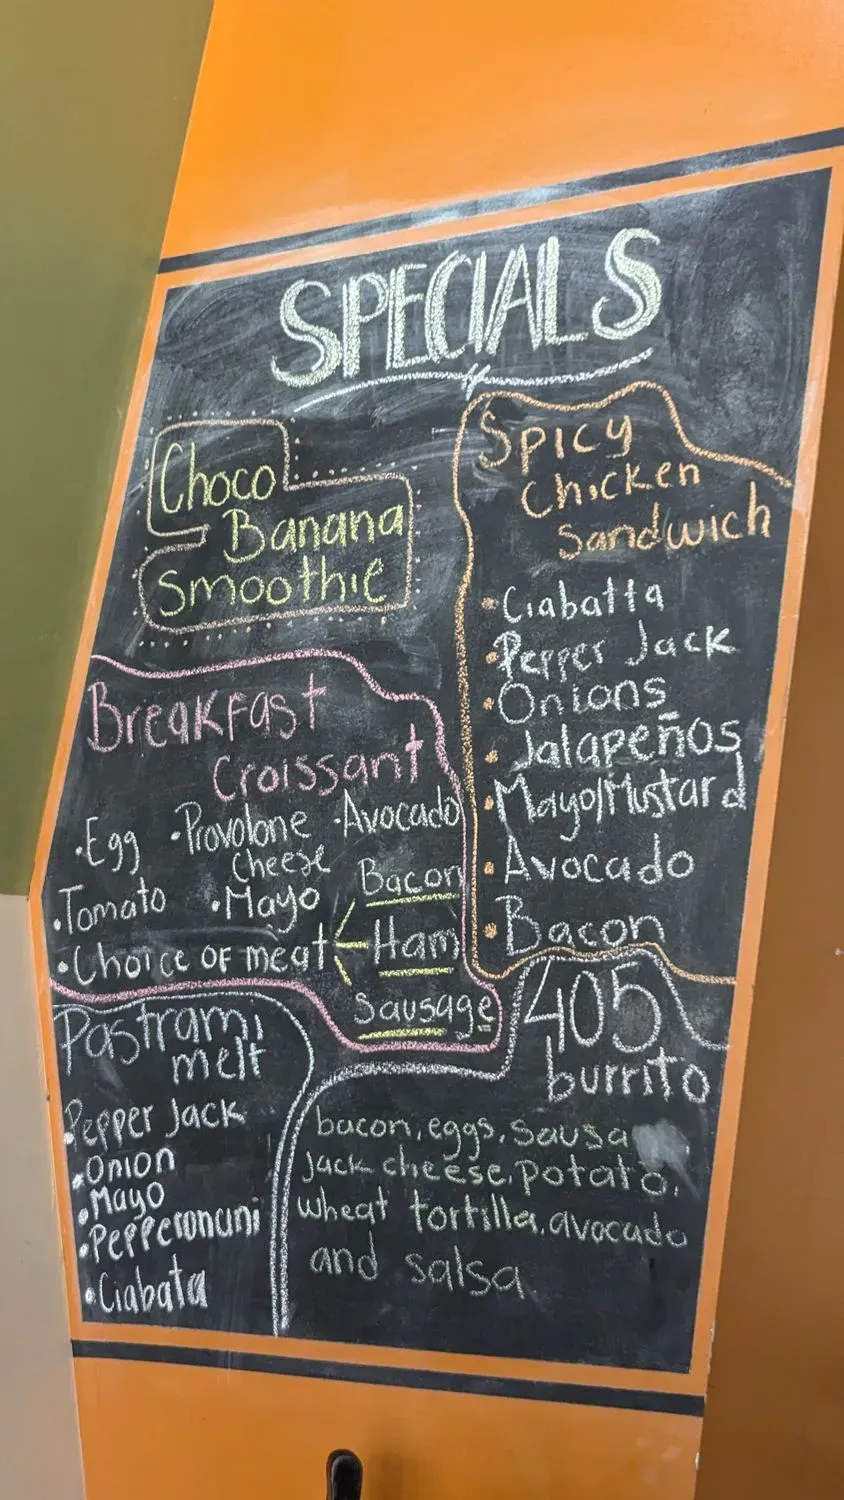 SPECIALS
Choco
Banana
Smoothie
Spicy
Chicken
Sandwich
• Ciabatta
• Pepper Jack
• Onions
• Jalapeños
• Mayo/Mustard
• Avocado
• Bacon
Breakfast
Croissant
• Egg • Provolone • Avocado
Cheese
• Tomato • Mayo
• Choice of meat
Bacon
Ham
Sausage
Pastrami
melt
• Pepper Jack
• Onion
• Mayo
• Ciabata
405
burrito
bacon, eggs, sausa
Jack cheese, potato,
wheat tortilla, avocado
and salsa